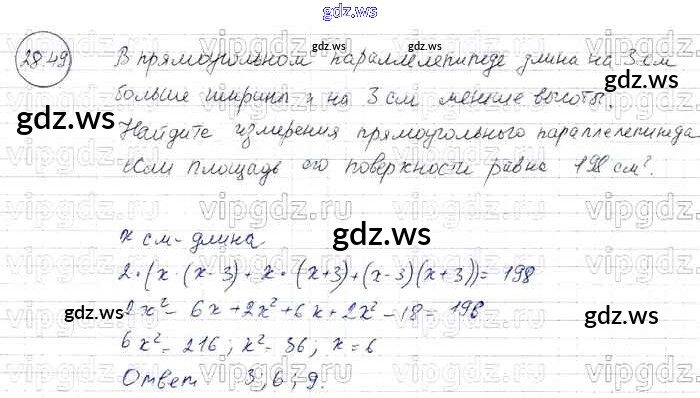 gdz.ws
28.49 В прямоугольном параллелепипеде длина на 3 см
больше ширины и на 3 см меньше высоты.
Найдите измерения прямоугольного параллелепипеда
если площадь его поверхности равна 198 см².
x см - длина
2·(x·(x-3) + x·(x+3) + (x-3)(x+3)) = 198
2x² - 6x + 2x² + 6x + 2x² - 18 = 198
6x² = 216; x² = 36; x = 6
Ответ 3; 6; 9.
gdz.ws
gdz.ws
gdz.ws
gdz.ws
gdz.ws
gdz.ws
gdz.ws
gdz.ws
gdz.ws
vipgdz.ws